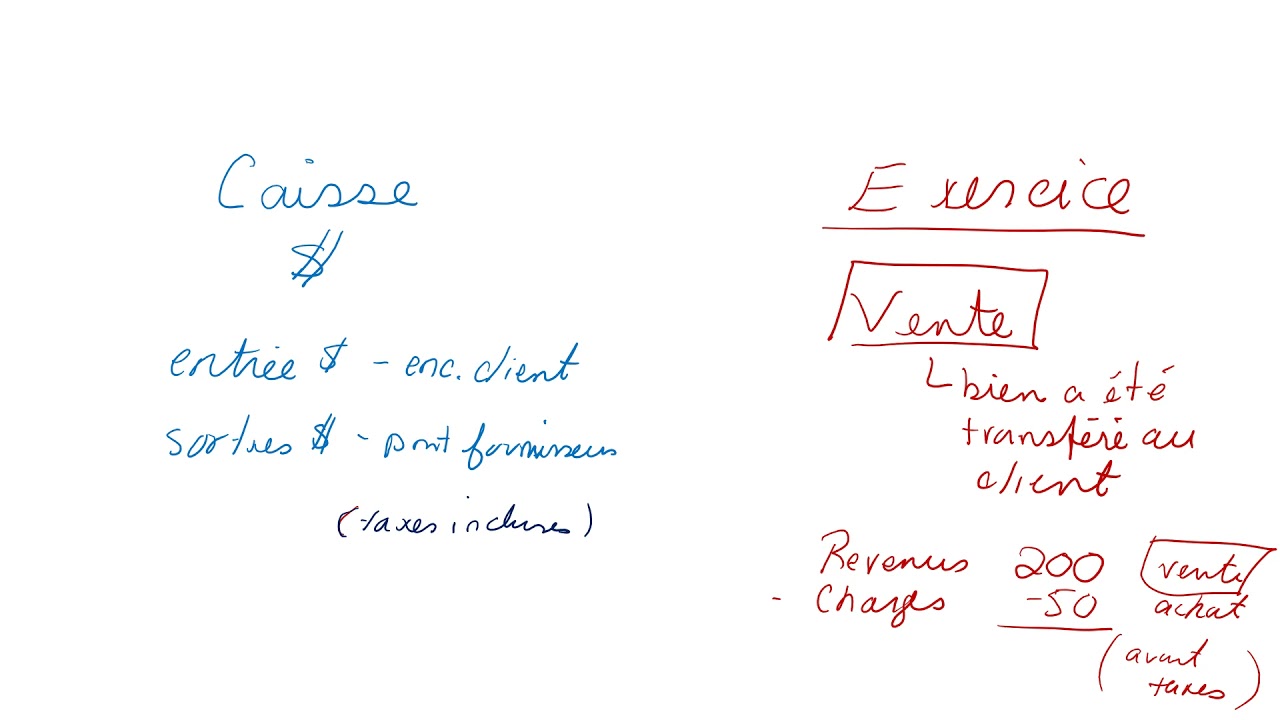 Caisse
$
entrée $ - enc. client
sorties $ - pmt fournisseurs
(taxes incluses)
Exercice
Vente
bien a été
transféré au
client
Revenus 200 vente
- Charges -50 achat
(avant
taxes)